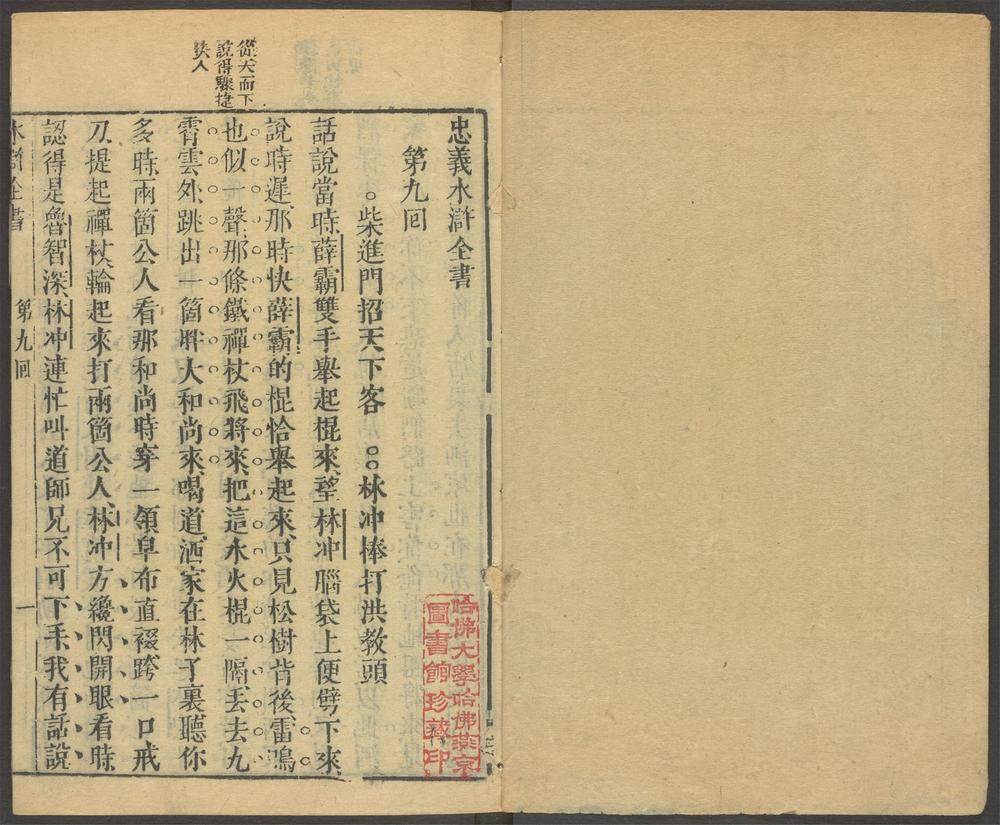 從天而下
說得驟捷
忠義水滸全書
第九回
柴進門招天下客　林冲棒打洪教頭
話說當時薛霸雙手舉起棍來望林冲腦袋上便劈下來
說時遲那時快薛霸的棍恰舉起來只見松樹背後雷鳴
也似一聲那條鐵禪杖飛將來把這水火棍一隔丟去九
霄雲外跳出一箇胖大和尚來喝道洒家在林子裏聽你
多時兩箇公人看那和尚時穿一領皁布直裰跨一口戒
刀提起禪杖輪起來打兩箇公人林冲方纔閃開眼看時
認得是魯智深林冲連忙叫道師兄不可下手我有話說
水滸全書
第九回
一
哈佛大學哈佛燕京
圖書館珍藏印